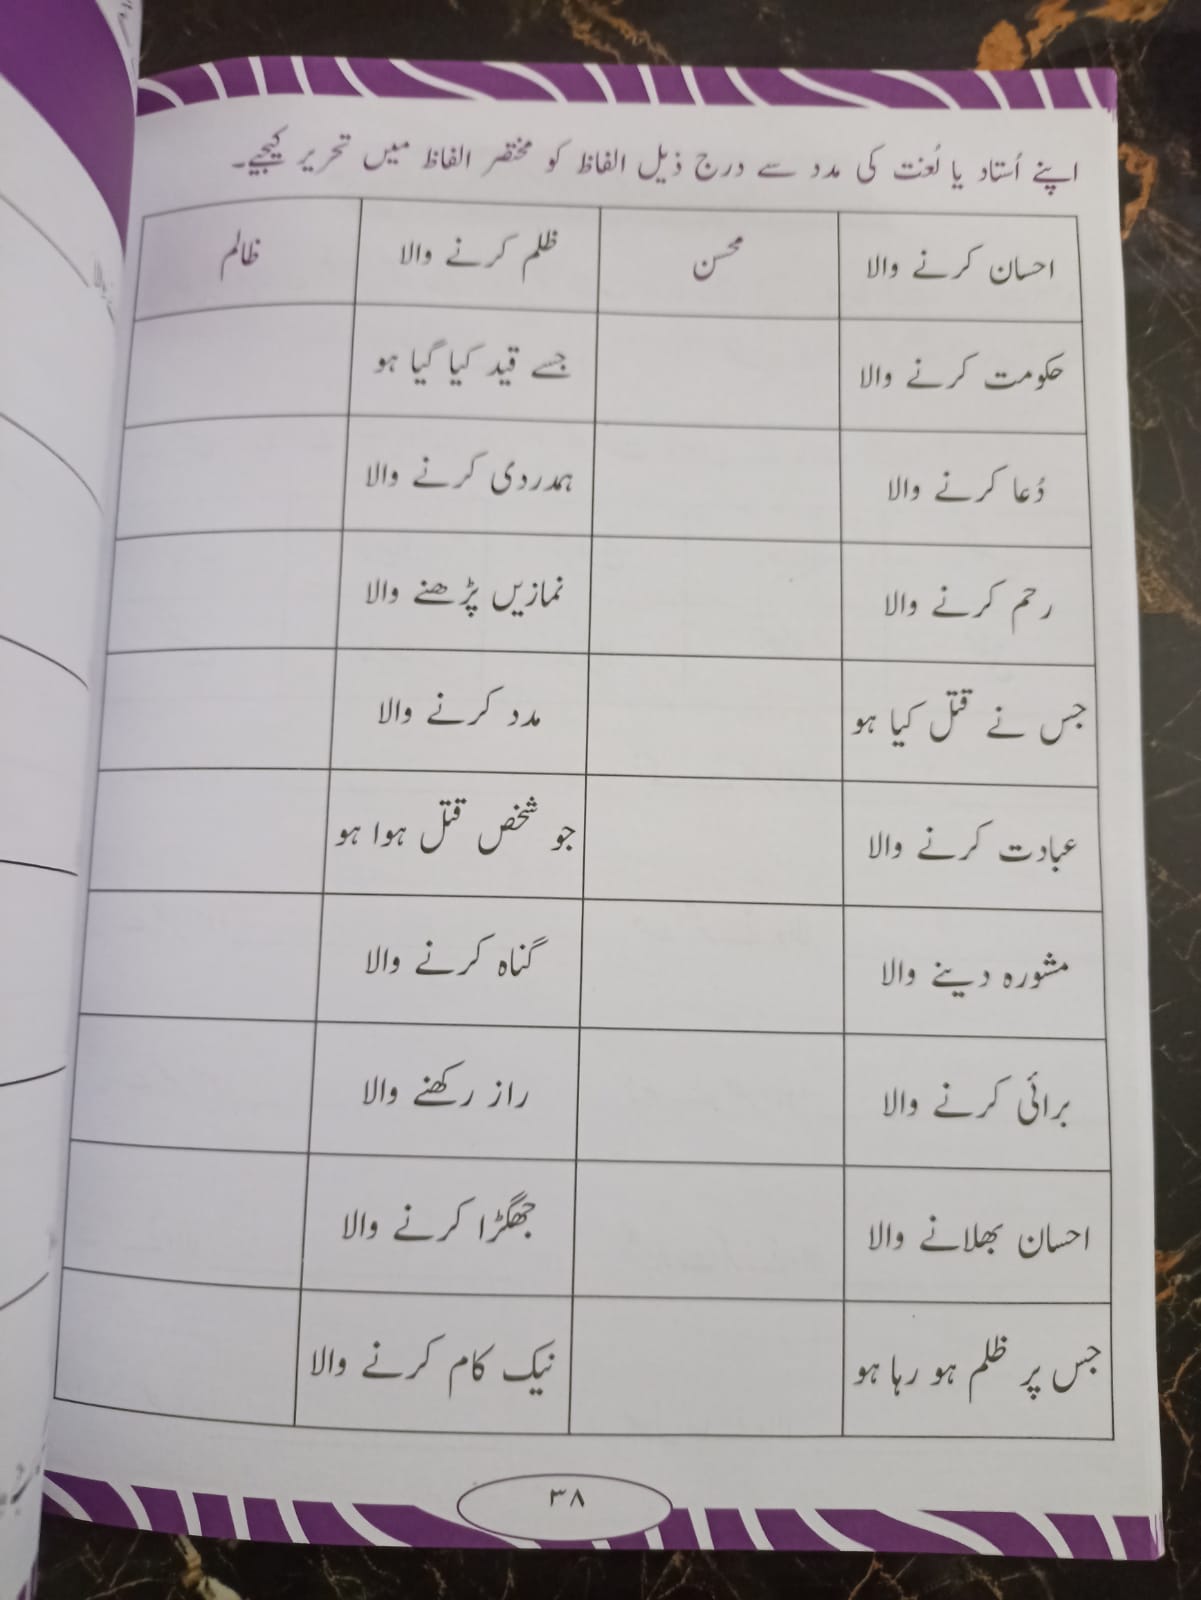 اپنے اُستاد یا لُغت کی مدد سے درج ذیل الفاظ کو مختصر الفاظ میں تحریر کیجیے۔
احسان کرنے والا محسن ظلم کرنے والا ظالم
حکومت کرنے والا جسے قید کیا گیا ہو
دُعا کرنے والا ہمدردی کرنے والا
رحم کرنے والا نمازیں پڑھنے والا
جس نے قتل کیا ہو مدد کرنے والا
عبادت کرنے والا جو شخص قتل ہوا ہو
مشورہ دینے والا گناہ کرنے والا
برائی کرنے والا راز رکھنے والا
احسان بھلانے والا جھگڑا کرنے والا
جس پر ظلم ہو رہا ہو نیک کام کرنے والا
۳۸